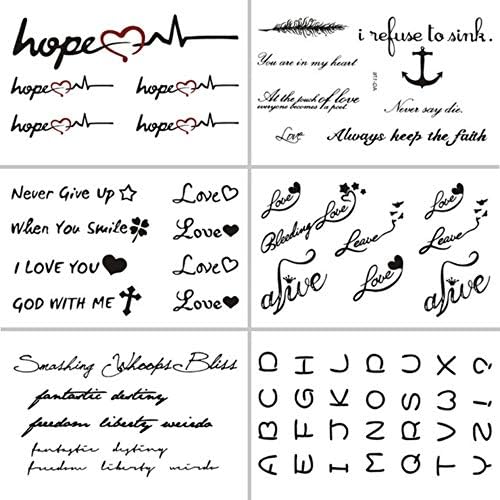 hope
hope hope
hope hope
i refuse to sink.
You are in my heart
At the touch of love
everyone becomes a poet.
Never say die.
Love
Always keep the faith
Never Give Up
Love
When You Smile
Love
I LOVE YOU
Love
GOD WITH ME
Love
Love
Love
Love
Bleeding
Leave
Leave
alive
Love
alive
Smashing Whoops Bliss
fantastic destiny
freedom liberty weirdo
fantastic destiny
freedom liberty weirdo
A B C D
E F G H
I J K L
M N O P
Q R S U
T V W X
Y Z ! ?